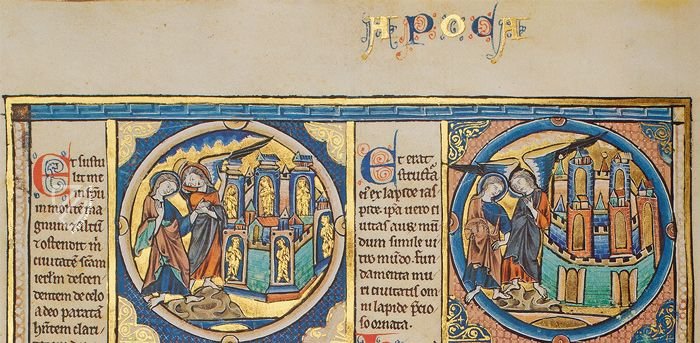 APOCA
Et sustu
lit me
in spu
in montē ma
gnum ⁊ altū
⁊ ostendit m̄
civitatē scām
ierl̄m descen
dentem de celo
a deo paratā
hn̄tem clari
Et erat
structa
ei᷑ ex lapide ias
pide. ip̄a uero ci
uitas auꝝ mū
dum simile ui
tro mūdo. fun
damenta mu
ri ciuitatis om
ni lapide p̄cio
so ornata.